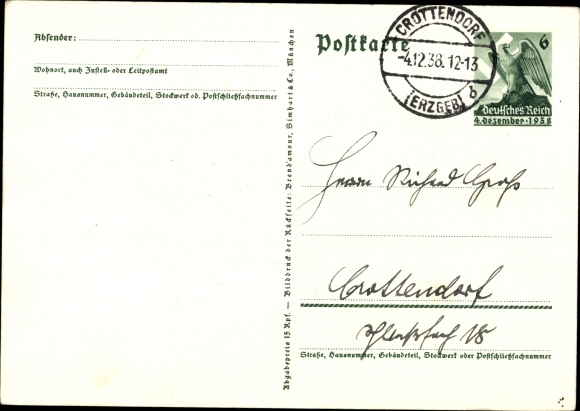 Absender:
Wohnort, auch Zustell- oder Leitpostamt
Straße, Hausnummer, Gebäudeteil, Stockwerk od. Postschließfachnummer
Abgabepreis 15 Rpf. — Bilddruck der Rückseite: Brend'amour, Simhart & Co., München
Postkarte
CROTTENDORF
-4.12.38.12-13
(ERZGEB) b
6
Deutsches Reich
4. Dezember · 1938
Herrn Richard Groß
Crottendorf
18
Straße, Hausnummer, Gebäudeteil, Stockwerk oder Postschließfachnummer